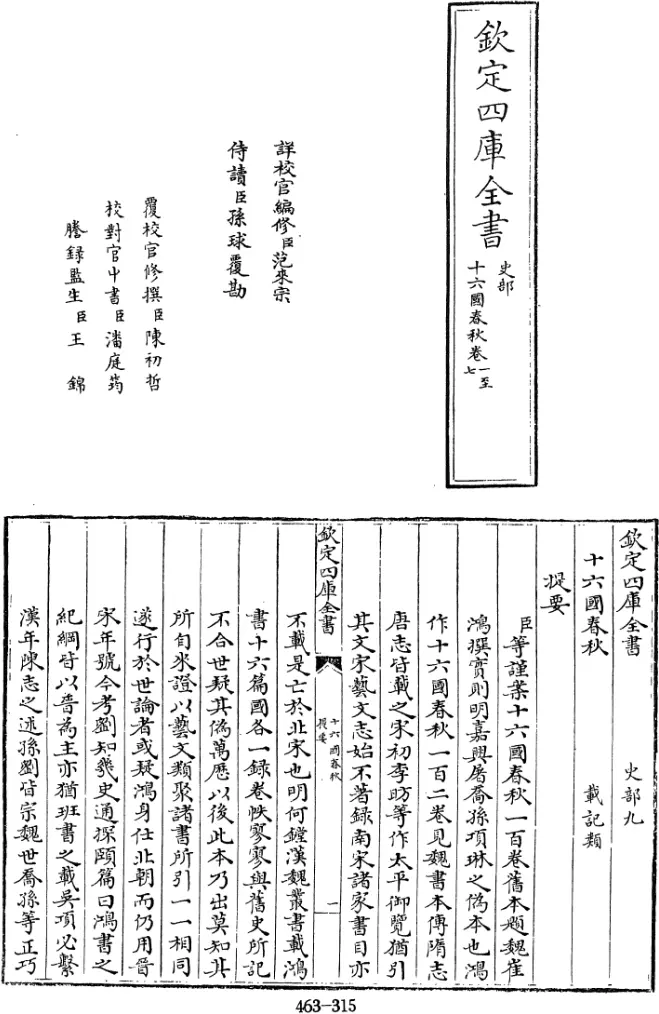 欽定四庫全書
史部
十六國春秋卷一至七
詳校官編修臣范來宗
侍讀臣孫球覆勘
覆校官修撰臣陳初哲
校對官中書臣潘庭筠
謄錄監生臣王錦
欽定四庫全書
史部九
十六國春秋
載記類
提要
臣等謹案十六國春秋一百卷舊本題魏崔
鴻撰實則明嘉興屠喬孫項琳之偽本也鴻
作十六國春秋一百二卷見魏書本傳隋志
唐志皆載之宋初李昉等作太平御覽猶引
其文宋藝文志始不著錄南宋諸家書目亦
欽定四庫全書
十六國春秋
提要
一
不載是亡於北宋也明何鏜漢魏叢書載鴻
書十六篇國各一録卷帙寥寥與舊史所記
不合世疑其偽萬歷以後此本乃出莫知其
所自來證以藝文類聚諸書所引一一相同
遂行於世論者或疑鴻身仕北朝而仍用晉
宋年號今考劉知幾史通探賾篇曰鴻書之
紀綱皆以晉為主亦猶班書之載吳項必繫
漢年陳志之述孫劉皆宗魏世喬孫等正巧
463-315